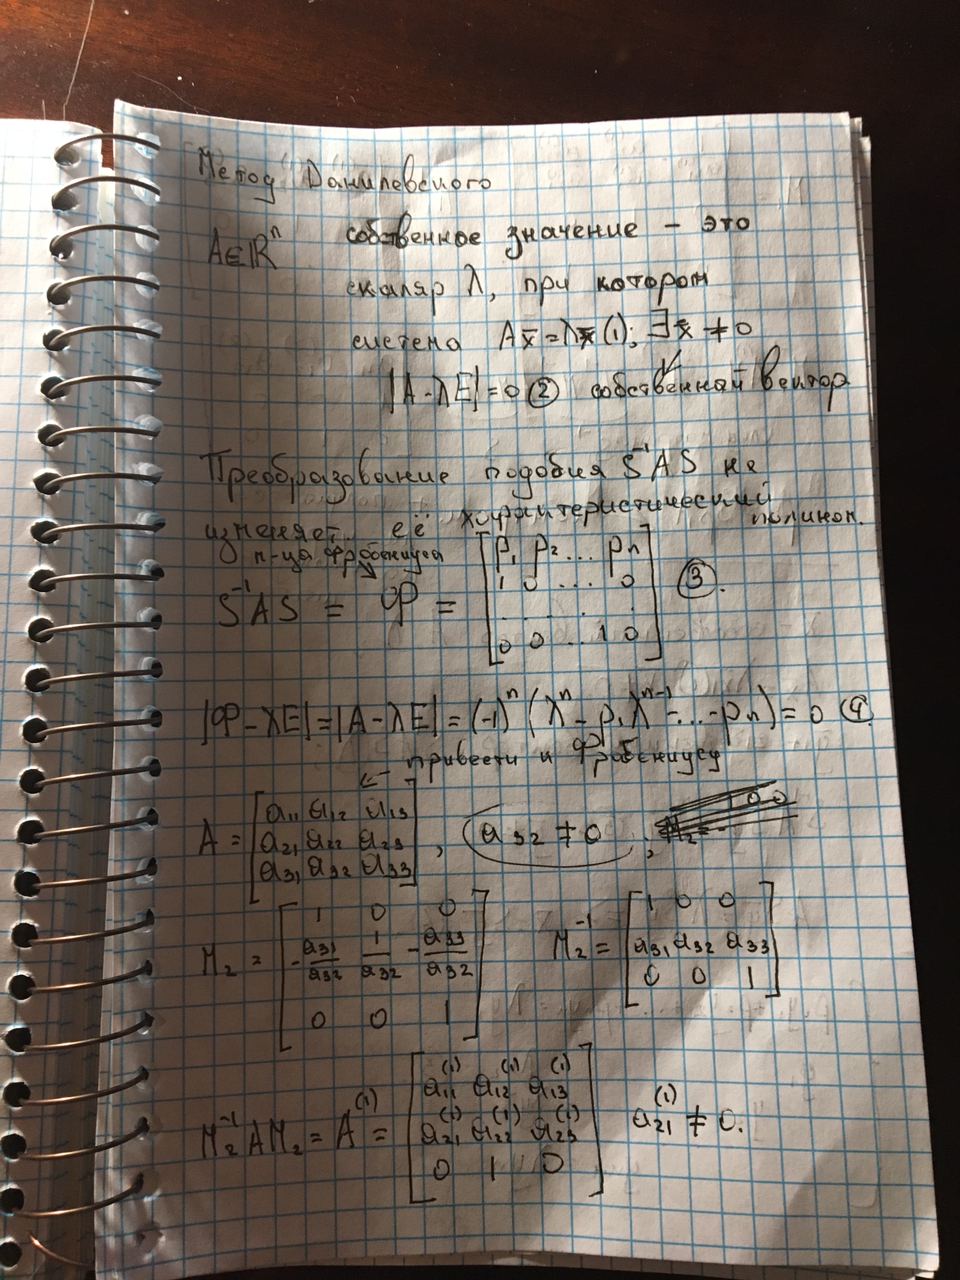 Метод Данилевского
A∈ℝⁿ собственное значение – это
скаляр λ, при котором
система Ax̄=λx̄ (1); ∃x̄ ≠0
|A-λE|=0 (2) собственный вектор
Преобразование подобия S⁻¹AS не
изменяет её характеристический полином.
м-ца Фробениуса
S⁻¹AS = Ф = [p₁ p₂ ... pₙ; 1 0 ... 0; . . . .; 0 0 ... 1 0] (3).
|Ф-λE|=|A-λE|=(-1)ⁿ(λⁿ-p₁λⁿ⁻¹-...-pₙ)=0 (4)
← привести к Фробениусу
A = [a₁₁ a₁₂ a₁₃; a₂₁ a₂₂ a₂₃; a₃₁ a₃₂ a₃₃], a₃₂ ≠ 0,
M₂ = [1 0 0; -a₃₁/a₃₂ 1/a₃₂ -a₃₃/a₃₂; 0 0 1] M₂⁻¹ = [1 0 0; a₃₁ a₃₂ a₃₃; 0 0 1]
M₂⁻¹AM₂ = A⁽¹⁾ = [a₁₁⁽¹⁾ a₁₂⁽¹⁾ a₁₃⁽¹⁾; a₂₁⁽¹⁾ a₂₂⁽¹⁾ a₂₃⁽¹⁾; 0 1 0] a₂₁⁽¹⁾ ≠ 0.